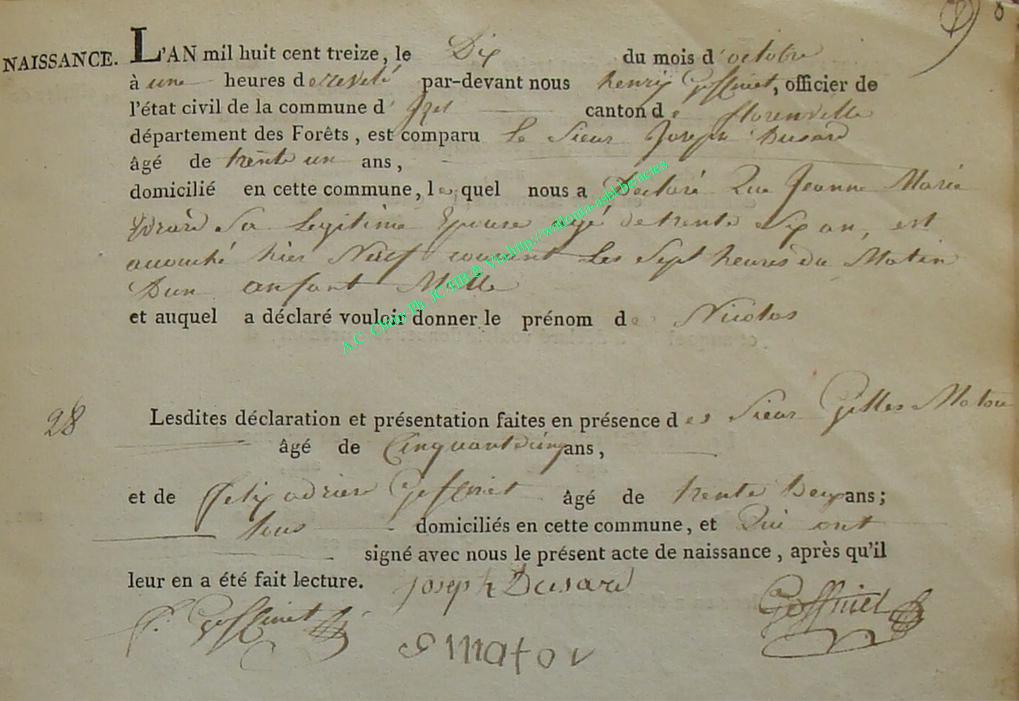 8
NAISSANCE. L'AN mil huit cent treize, le Dix du mois d'octobre
à une heures de relevé par-devant nous henry Goffinet, officier de
l'état civil de la commune d' Izel canton de florenville
département des Forêts, est comparu Le Sieur Joseph Dusard
âgé de trente un ans,
domicilié en cette commune, lequel nous a Declaré Que Jeanne Marie
Sa Legitime Epouse agé de trente Six an, est
accouché hier Neuf courant Les Sept heures du Matin
Dun anfant Malle
et auquel a déclaré vouloir donner le prénom de Nicolas
28
Lesdites déclaration et présentation faites en présence des Sieur Gilles Maton
âgé de Cinquant cinq ans,
et de felix adrien Goffinet âgé de trente Deux ans;
tous domiciliés en cette commune, et Qui ont
signé avec nous le présent acte de naissance, après qu'il
leur en a été fait lecture. joseph Dusard
f. Goffinet Goffinet
G maton